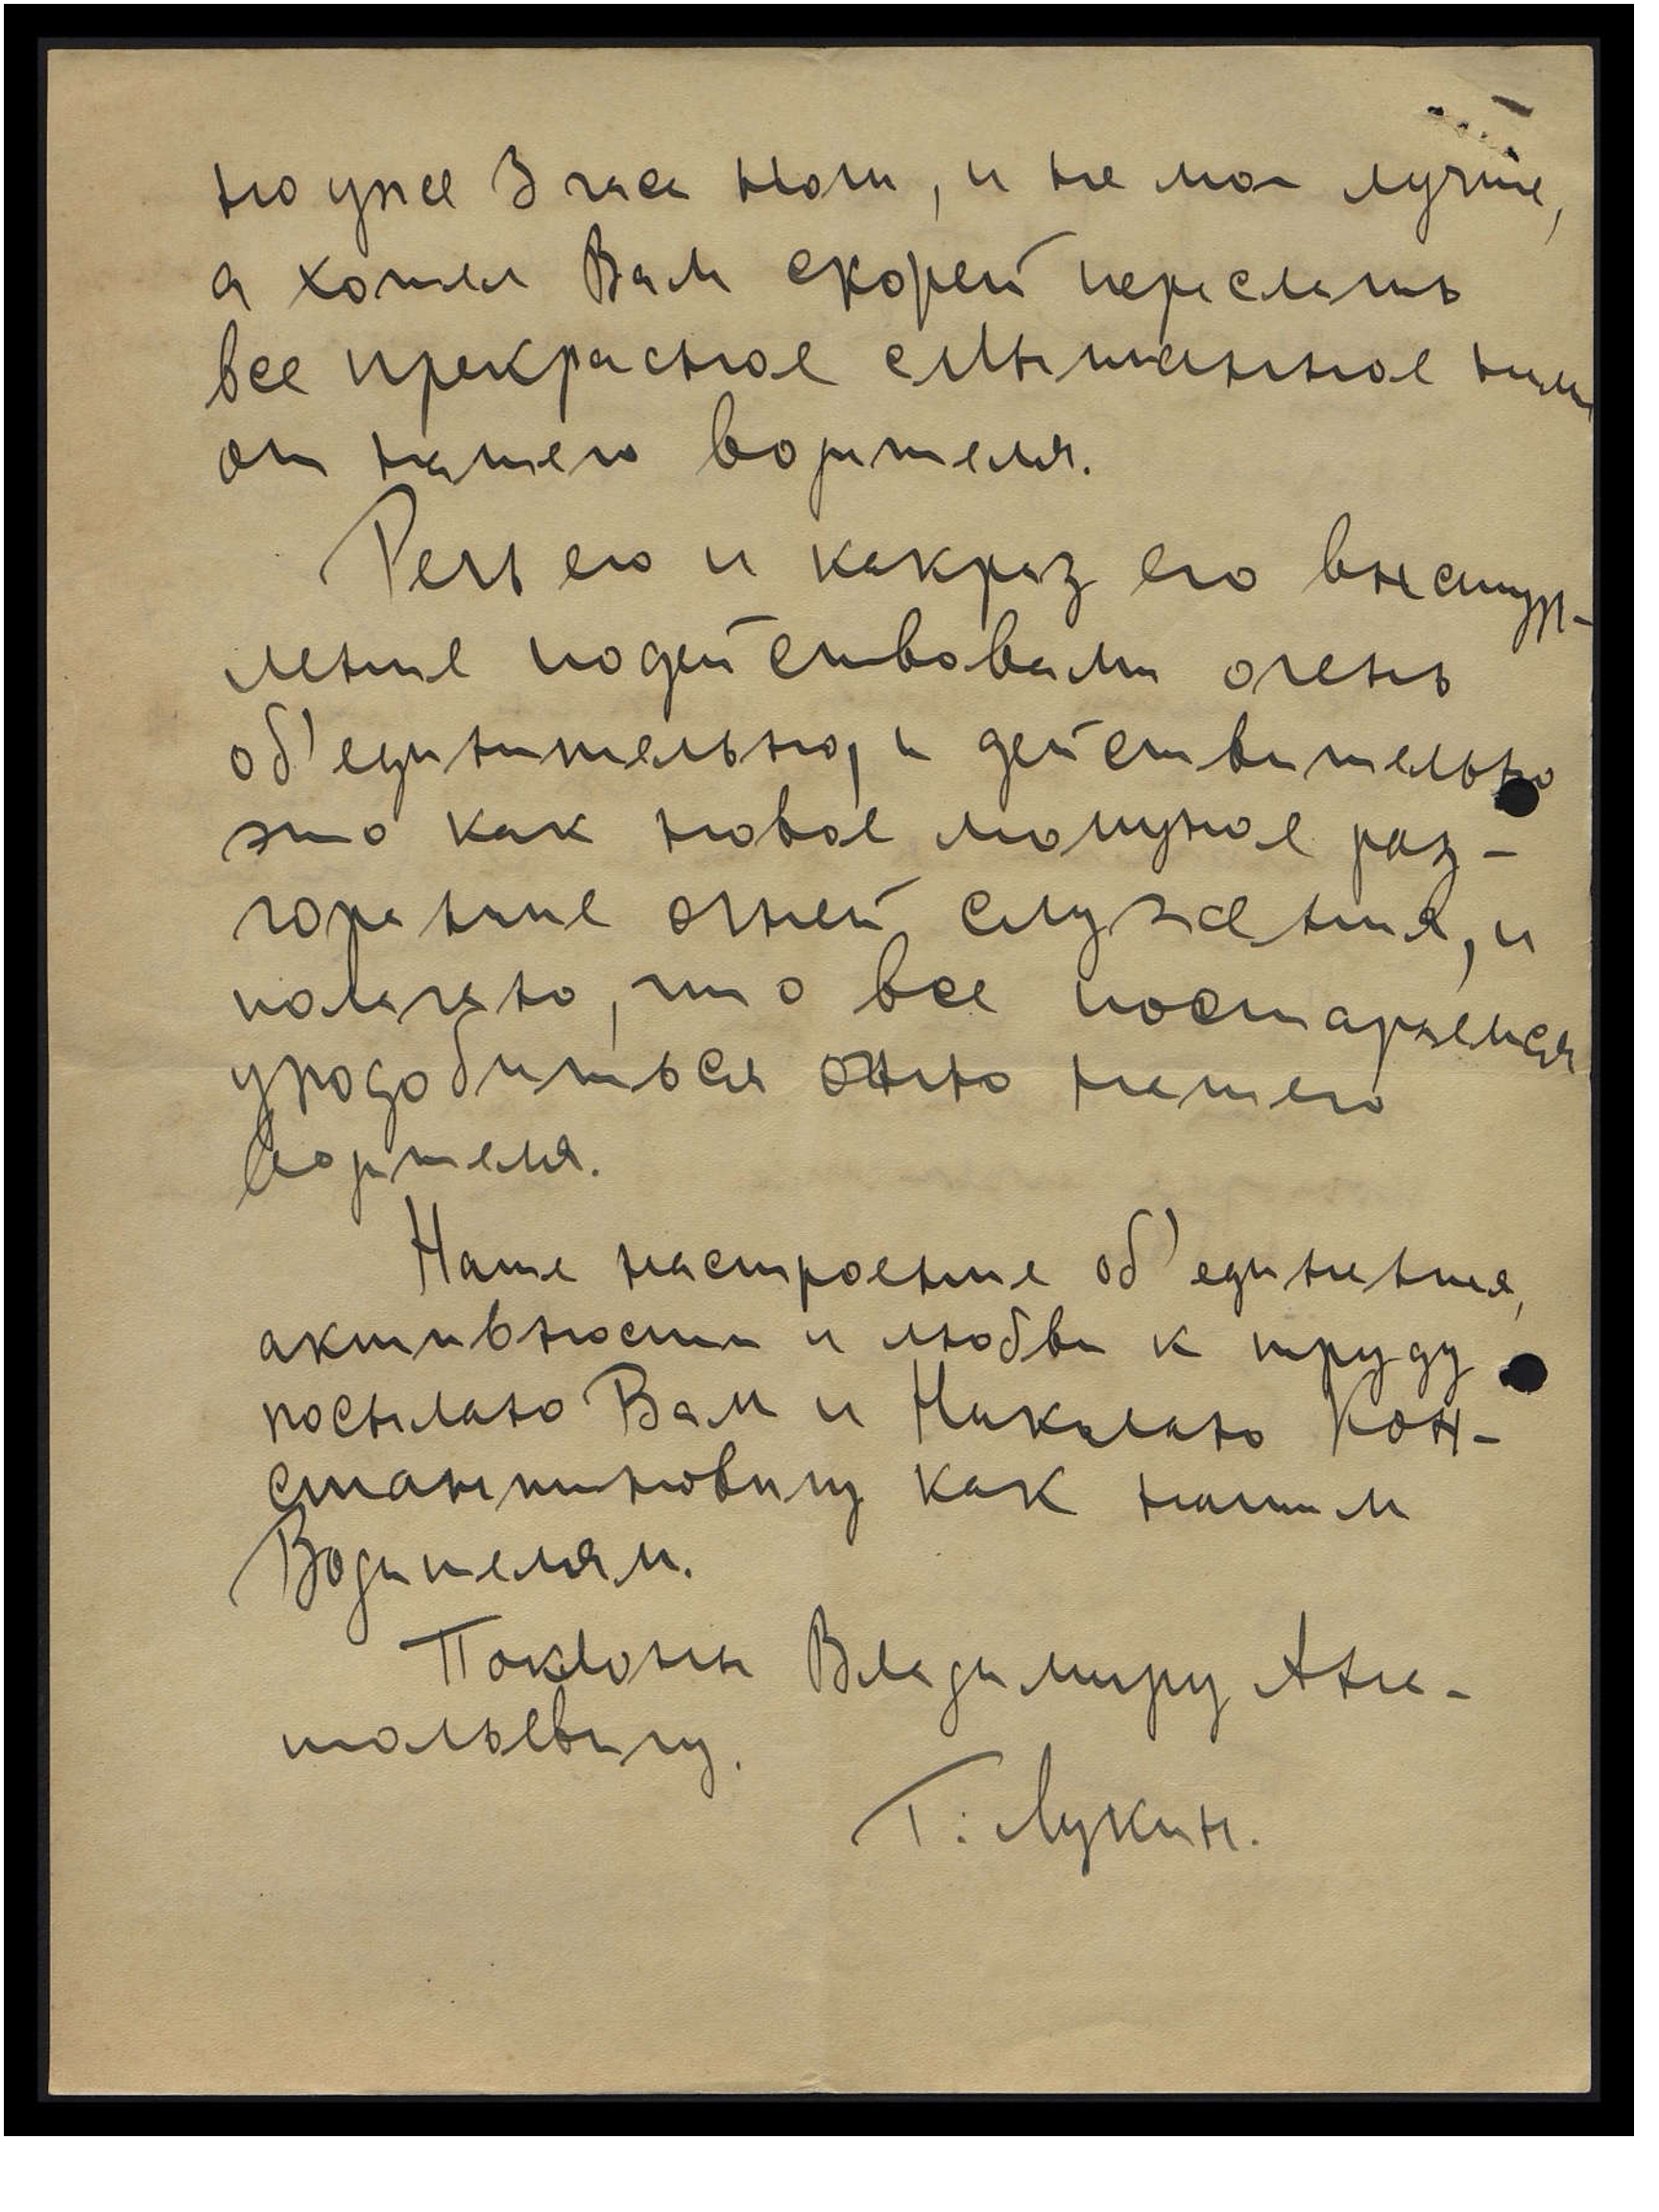 но уже 3 часа ночи, и не мог лучше,
а хотел Вам скорей переслать
все прекрасное слышанное нами
от нашего водителя.
Речь его и какраз его выступ-
ление подействовали очень
об'единительно, и действительно
это как новое мощное раз-
горание огней служения, и
полагаю, что все постараемся
уподобиться огню нашего
водителя.
Наше настроение об'единения,
активности и любви к труду
посылаю Вам и Николаю Кон-
стантиновичу как нашим
Водителям.
Поклоны Владимиру Ана-
тольевичу.
Г: Лукин.